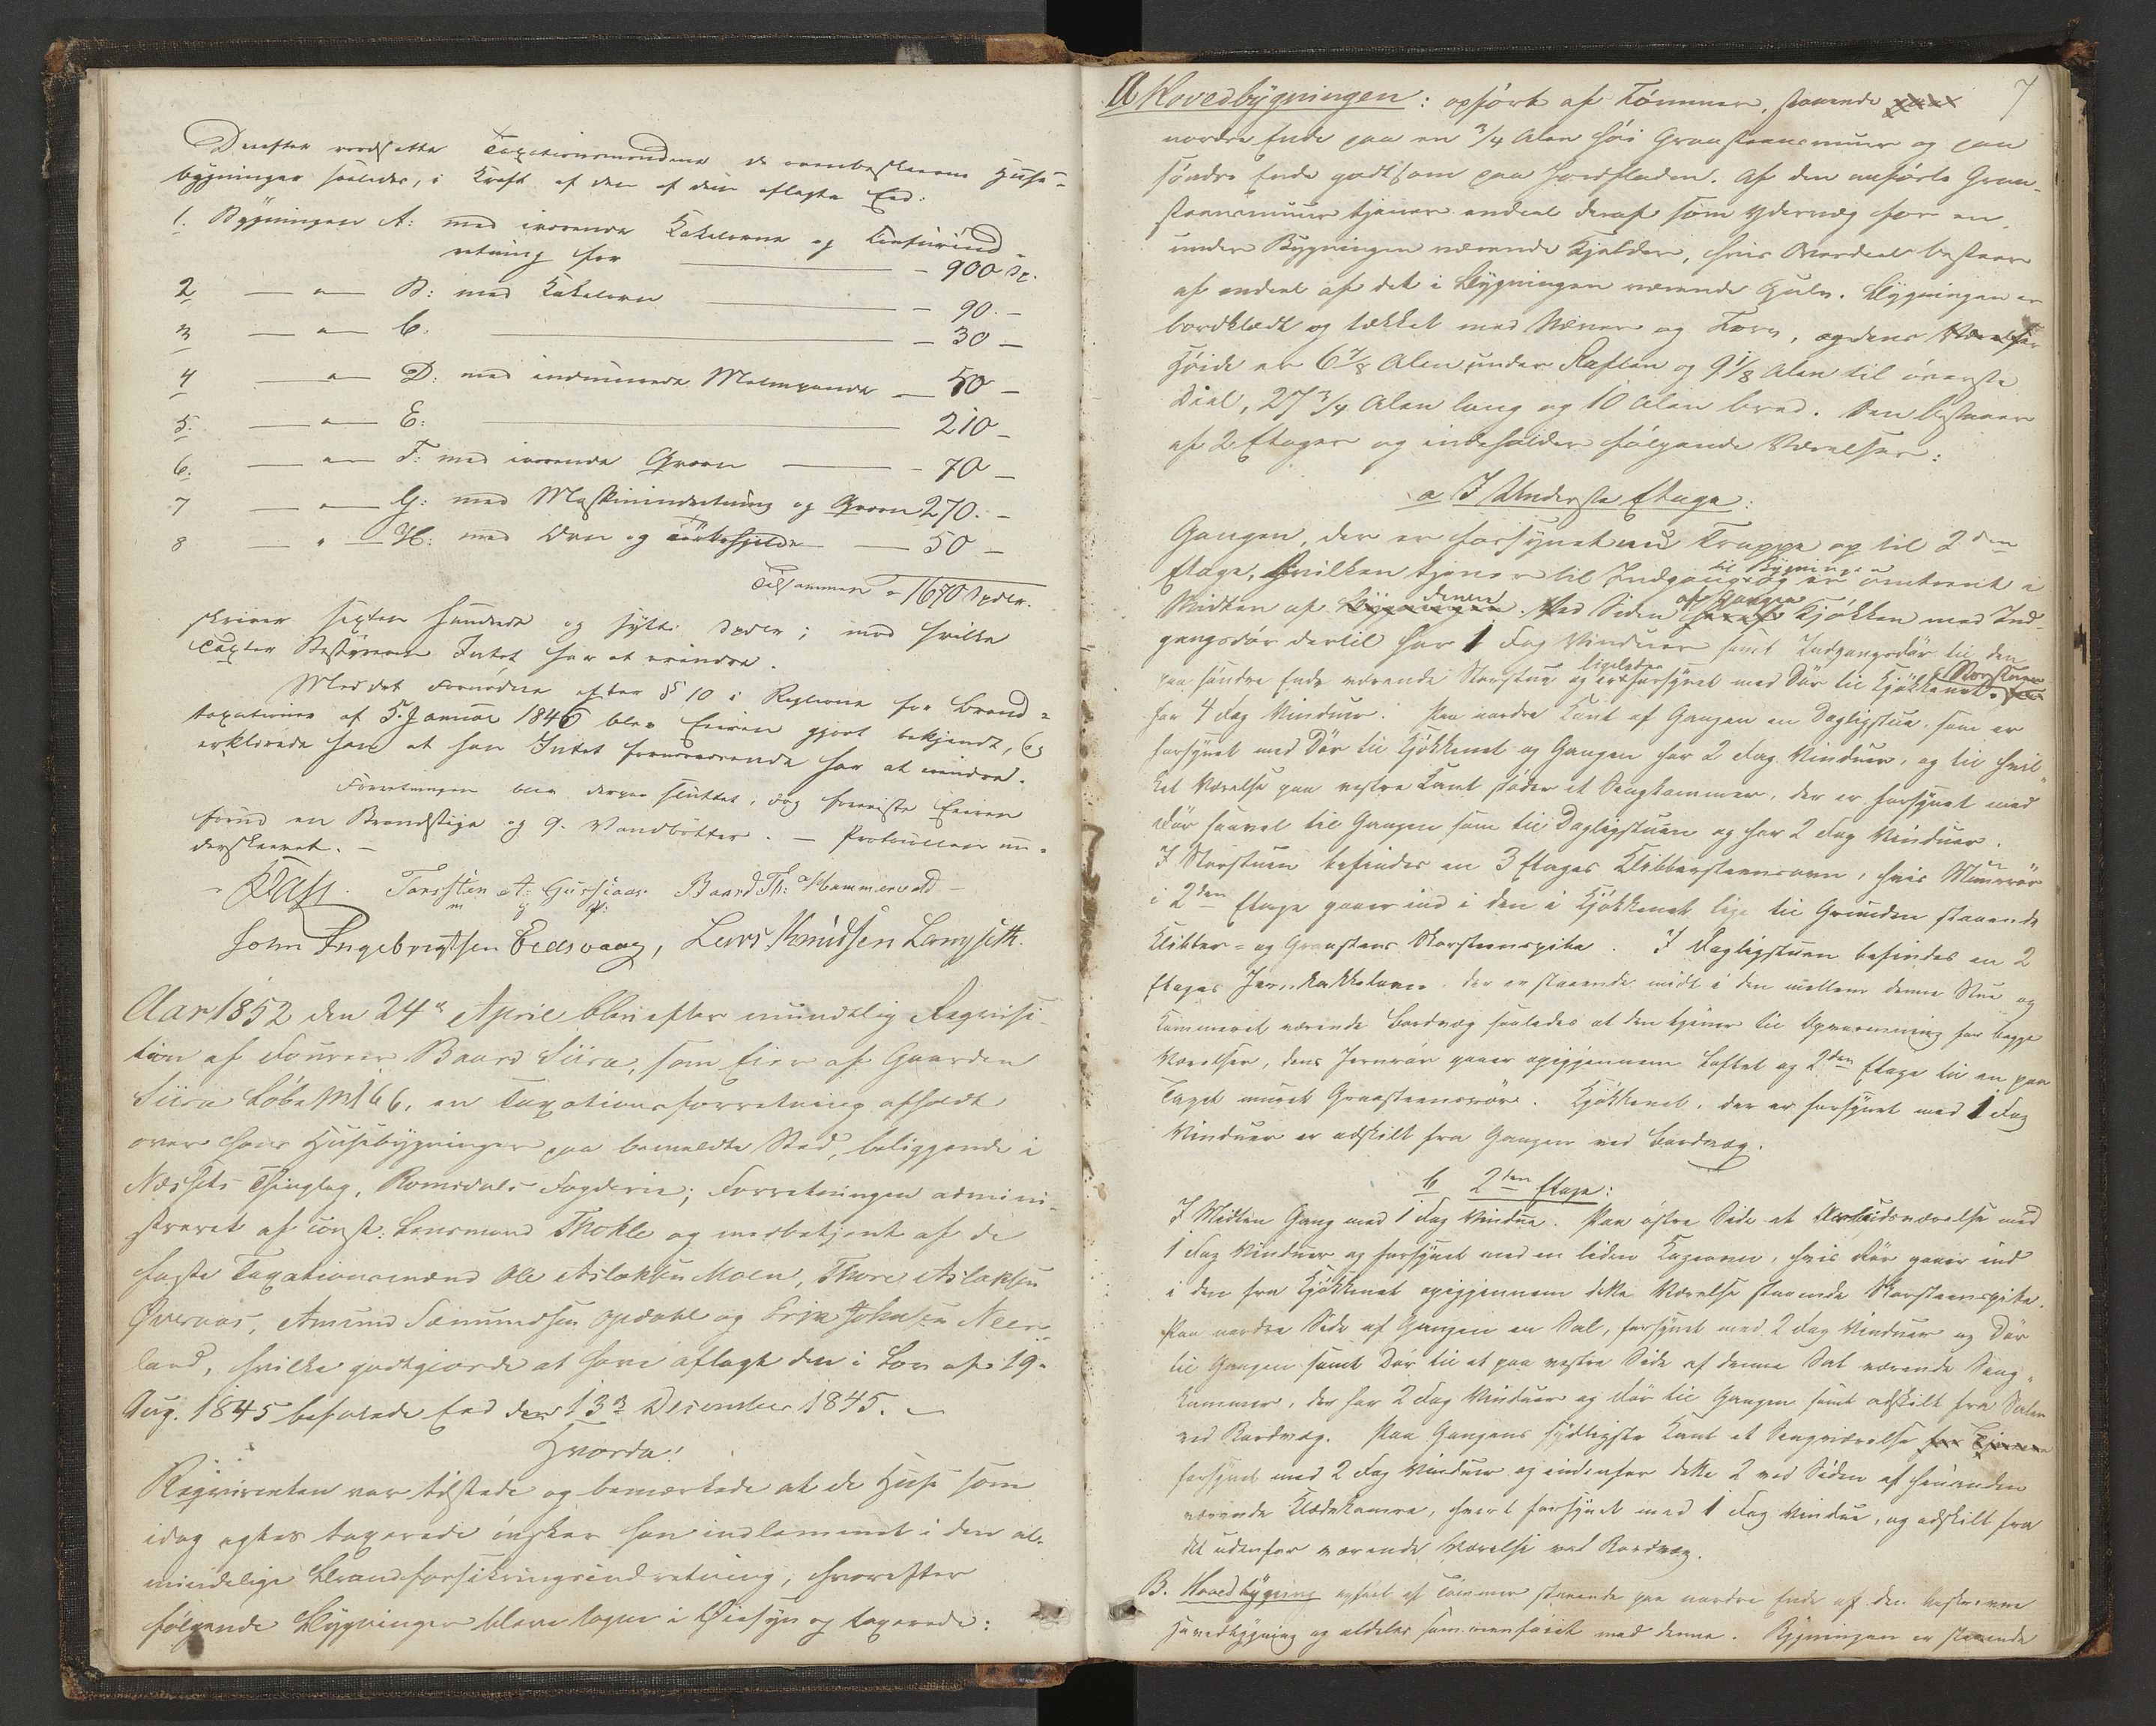 Derefter værdsatte Taxationsmændene de ovenbeskrevne Huse-
bygninger saaledes, i Kraft af den af dem aflagte Eed:
1. Bygningen A: med iværende Kakelovne og
retning for — 900 Sp.
2 — " — B: med Kakelovn — 90. —
3 — " — C. — 30 —
4 — " — D: med indmurede Malmpande — 50 —
5. — " — E: — 210 —
6. — " — F: med iværende Qværn — 70 —
7 — " — G: med Maskinindretning og Qværn 270. —
8 — " — H: med Ovn og — 50 —
Tilsammen = 1670 Spdlr.
skriver sexten hundrede og sytti Spdlr; mod hvilken
Taxten Bestyreren Intet har at erindre.
Med det Fornødne efter § 10 i Reglerne for Brand-
taxationer af 5. Januar 1846 blev Eieren gjort bekjendt, og
erklærede han at han Intet foranstaaende har at erindre.
Forretningen blev derpaa sluttet, dog foreviste Eieren
forud en Brandstige og 9. Vandbøtter. — Protocollen un-
derskrevet. —
Torsten A: Baard Th: Hammervold —
m g P:
John Ingebrigtsen Eedsvaag, Lars Knudsen Langseth.
Aar 1852 den 24de April blev efter mundtlig Reqvisi-
tion af Foureer Baard Siira, som Eier af Gaarden
Siira Løbe № 166, en Taxationsforretning afholdt
over hans Husebygninger paa bemeldte Sted, beliggende i
Næssets Thinglag, Romsdals Fogderie; Forretningen admini-
streret af const: Lensmand Thokle og medbetjent af de
faste Taxationsmænd Ole Aslaksen Moen, Thore Aslaksen
Øveraas, Amund Sæmundsen Opdahl og Erik Johnsen Neer-
land, hvilke godtgjorde at have aflagt den i Lov af 19.
Aug. 1845 befalede Eed den 13de December 1845. —
Hvorda!
Reqvirenten var tilstede og bemærkede at de Huse som
idag agtes taxerede ønsker han indlemmet i den al-
mindelige Brandforsikringsindretning, hvorefter
følgende Bygninger bleve tagne i Øiesyn og taxerede:
7
A Hovedbygningen: opført af Tømmer, staaende
nordre Ende paa en 3/4 Alen høi Graasteensmuur og paa
søndre Ende godtsom paa Jordfladen. Af den anførte Graa-
steensmuur tjener endeel deraf som Ydervæg for en
under Bygningen værende Kjelder, hvis Overdeel bestaar
af endeel af det i Bygningen værende Gulv. Bygningen er
bordklædt og tækket med Næver og Torv, og dens
Høide er 6 7/8 Alen under Raften og 9 1/8 Alen til øverste
Deel, 27 3/4 Alen lang og 10 Alen bred. Den bestaaer
af 2 Etager og indeholder følgende Værelser:
a I Underste Etage:
Gangen, der er forsynet med Trappe op til 2den
til Bygningen
Etage, hvilken tjener til Indgang og er omtrent i
denne af Gangen
Midten af Bygningen. Ved Siden heraf Kjøkken med Ind-
gangsdør dertil har 1 Fag Vinduer samt Indgangsdør til den
ligeledes Storstuen
paa søndre Ende værende Storstue og er forsynet med Dør til Kjøkkenet.
har 4 Fag Vinduer. Paa nordre Kant af Gangen en Dagligstue, som er
forsynet med Dør til Kjøkkenet og Gangen har 2 Fag Vinduer, og til hvil-
ket Værelse paa vestre Kant støder et Sengkammer, der er forsynet med
Dør saavel til Gangen som til Dagligstuen og har 2 Fag Vinduer.
I Storstuen befindes en 3 Etages Klæbersteensovn, hvis Muurrør
i 2den Etage gaaer ind i den i Kjøkkenet lige til Grunden staaende
Klebber- og Graasteens Skorsteenspibe. I Dagligstuen befindes en 2
Etages Jern Kakkelovn, der er staaende midt i den mellem denne Stue og
Kammeret værende Bordvæg saaledes at den tjener til Opvarmning for begge
Værelser, dens Jernrør gaaer opigjennem Loftet og 2den Etage til en paa
Taget muret Graasteensrør. Kjøkkenet, der er forsynet med 1 Fag
Vinduer er adskilt fra Gangen ved Bordvæg.
b 2den Etage:
I Midten Gang med 1 Fag Vindue. Paa østre Side et Arbeidsværelse med
1 Fag Vinduer og forsynet med en liden Kogeovn, hvis Rør gaaer ind
i den fra Kjøkkenet opigjennem dette Værelse staaende Skorsteenspibe.
Paa nordre Side af Gangen en Sal, forsynet med 2 Fag Vinduer og Dør
til Gangen samt Dør til et paa vestre Side af denne Sal værende Seng-
kammer, der har 2 Fag Vinduer og Dør til Gangen samt adskilt fra Salen
ved Bordvæg. Paa Gangens sydligste Kant et Sengværelse
forsynet med 2 Fag Vinduer og indenfor dette 2 ved Siden af hinanden
værende Klædekamre, hvert forsynet med 1 Fag Vindue, og adskilt fra
det udenfor værende Værelse ved Bordvæg.
B. Hovedbygning opført af Tømmer staaende paa nordre Ende af den beskrevne
Hovedbygning og aldeles sammenføiet med denne. Bygningen er staaende